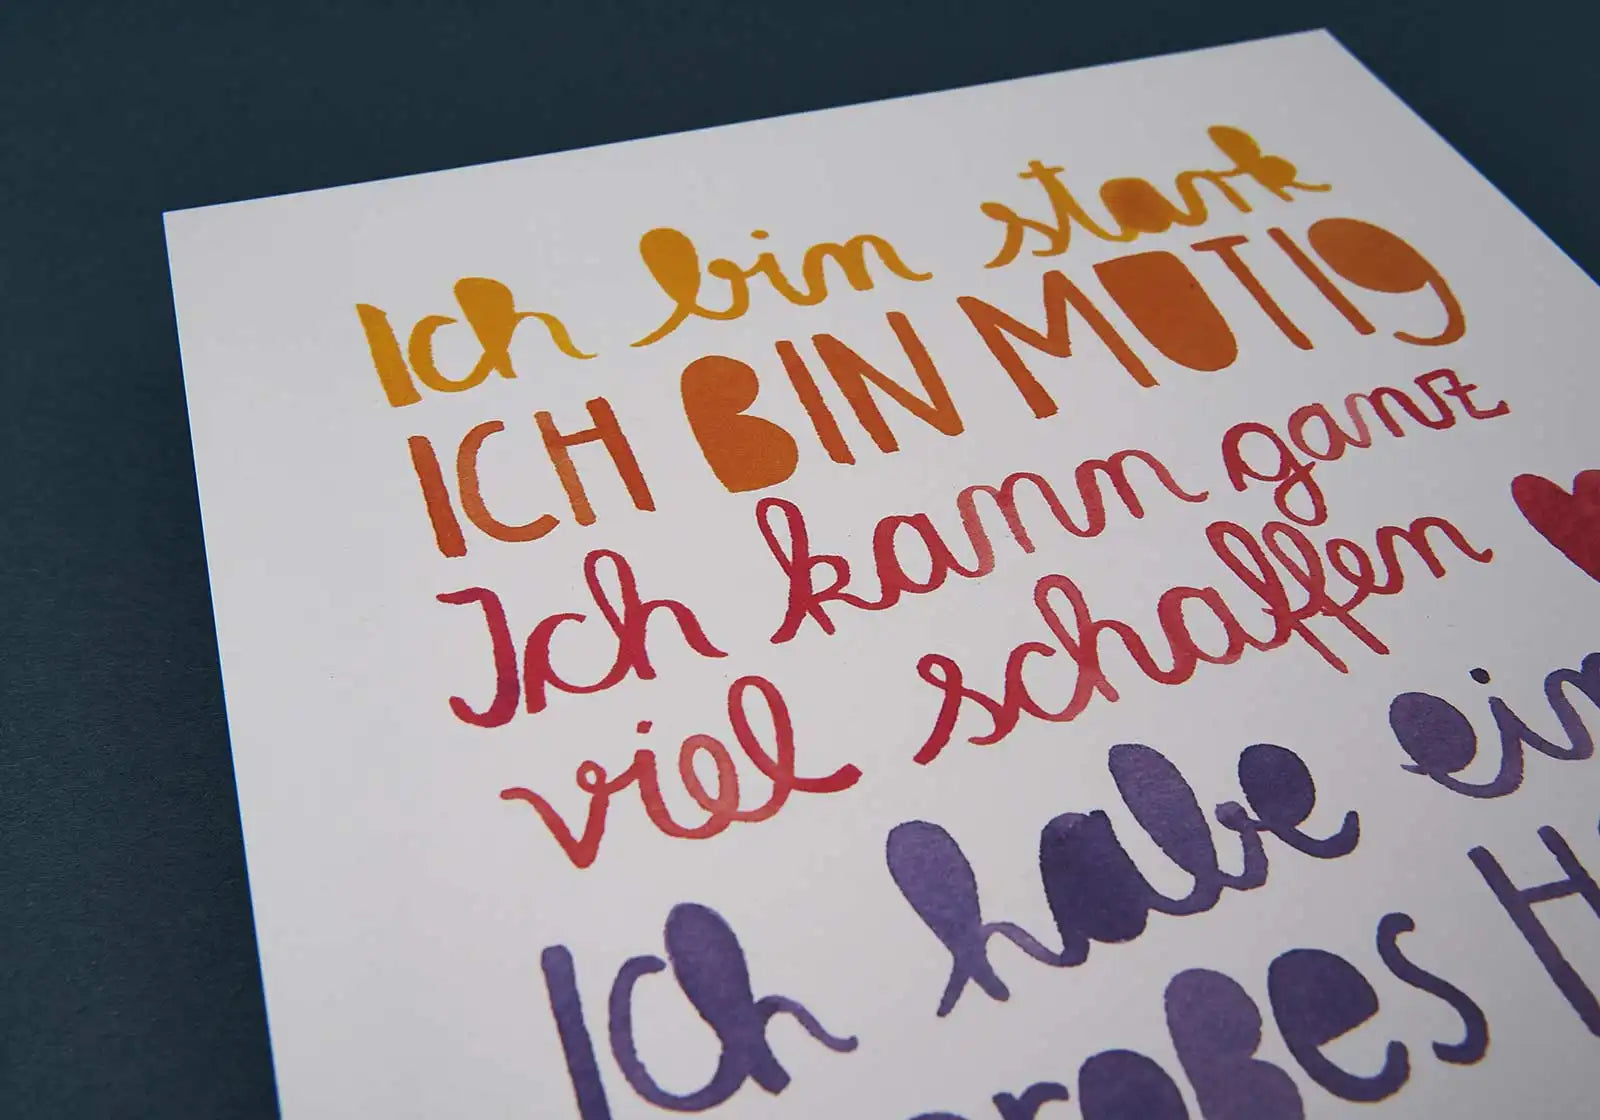 Ich bin stark
ICH BIN MUTIG
Ich kann ganz
viel schaffen
Ich habe ein